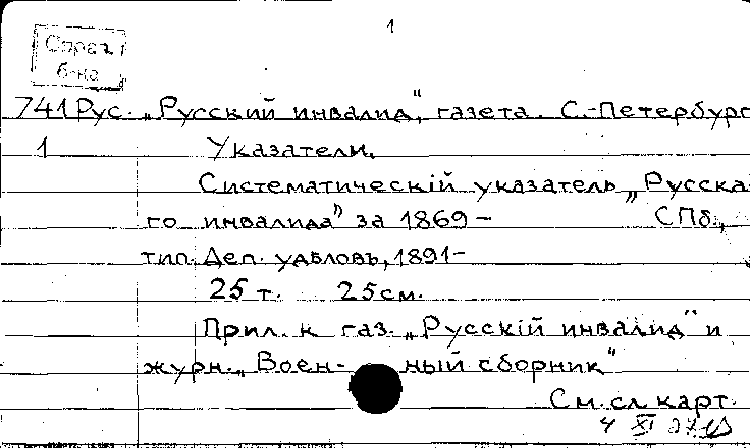 1
Справ
б-ка
741 Рус. „Русский инвалид", газета. С.-Петербург
1 Указатели.
Систематическій указатель „Русска
го инвалида" за 1869- СПб.,
тип. Деп. удѣловъ, 1891-
25 т. 25 см.
Прил. к газ. „Русскій инвалид" и
журн. „Воен- ный сборник"
См. сл карт.
4 XI 27